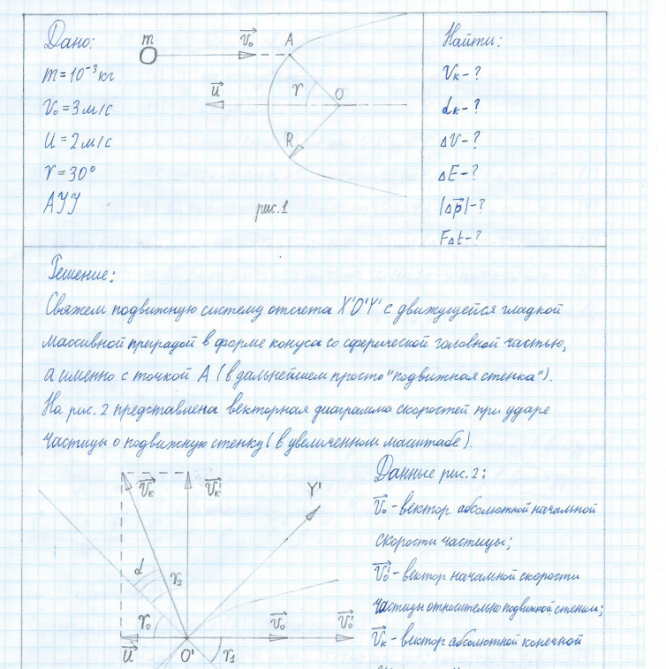 Дано:
m = 10⁻³ кг
V₀ = 3 м/с
U = 2 м/с
γ = 30°
АУУ
m
V₀
A
U
γ
O
R
рис. 1
Найти:
Vк - ?
αк - ?
ΔV - ?
ΔE - ?
|Δp| - ?
FΔt - ?
Решение:
Свяжем подвижную систему отсчета X'O'Y' с движущейся гладкой
массивной преградой в форме конуса со сферической головной частью,
а именно с точкой A (в дальнейшем просто "подвижная стенка").
На рис. 2 представлена векторная диаграмма скоростей при ударе
частицы о подвижную стенку (в увеличенном масштабе).
Vк
V'к
Y'
β
U
O'
V₀
V'₀
Данные рис. 2:
V₀ - вектор абсолютной начальной
скорости частицы;
V'₀ - вектор начальной скорости
частицы относительно подвижной стенки;
Vк - вектор абсолютной конечной